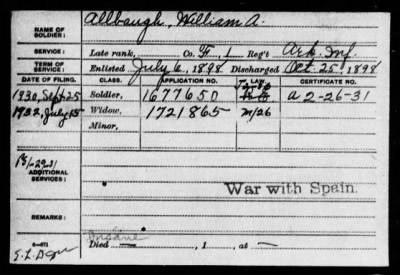 NAME OF SOLDIER: Allbaugh, William A.
SERVICE: Late rank, Co. F, 1 Reg't Ark. Inf.
TERM OF SERVICE: Enlisted July 6, 1898 Discharged Oct. 25, 1898
DATE OF FILING. CLASS. APPLICATION NO. LAW. CERTIFICATE NO.
1930, Sept 25 Soldier, 1677650 a 2-26-31
1932, July 15 Widow, 1721865 M/26
Minor,
ADDITIONAL SERVICES:
War with Spain.
REMARKS: Insane
Died — , 1 , at —